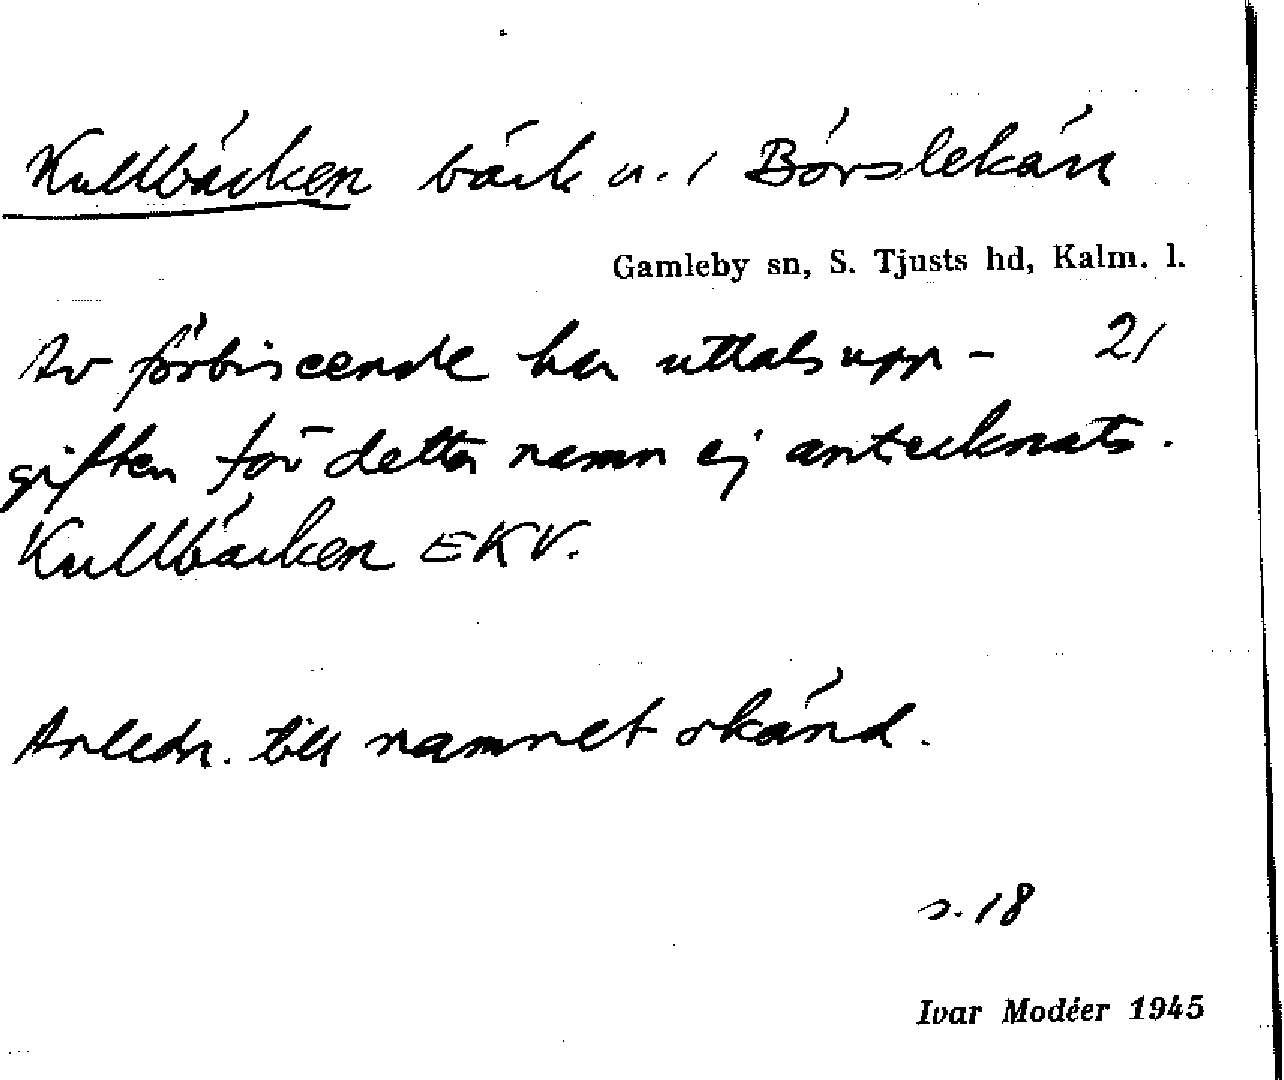 Kullbäcken bäck u. 1 Börslekärr
Gamleby sn, S. Tjusts hd, Kalm. l.
Av förbiseende har uttalsupp- 21
giften för detta namn ej antecknats.
Kullbäcken EKV.
Anledn. till namnet okänd.
s. 18
Ivar Modéer 1945